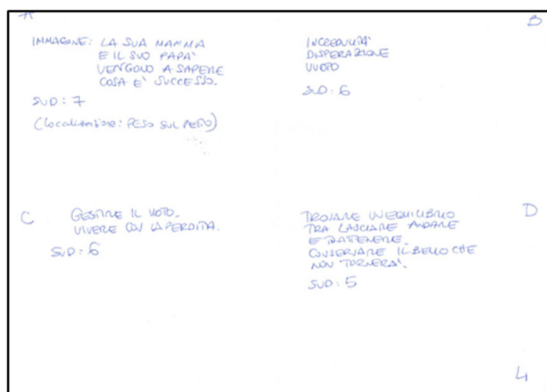 A
IMMAGINE: LA SUA MAMMA
E IL SUO PAPA'
VENGONO A SAPERE
COSA E' SUCCESSO.
SUD: 7
(localizzazione: PESO SUL PETTO)
B
INCREDULITA'
DISPERAZIONE
VUOTO
SUD: 6
C
GESTIRE IL VUOTO.
VIVERE CON LA PERDITA.
SUD: 6
D
TROVARE UN EQUILIBRIO
TRA LASCIARE ANDARE
E TRATTENERE.
CONSERVARE IL BELLO CHE
NON TORNERA'.
SUD: 5
4